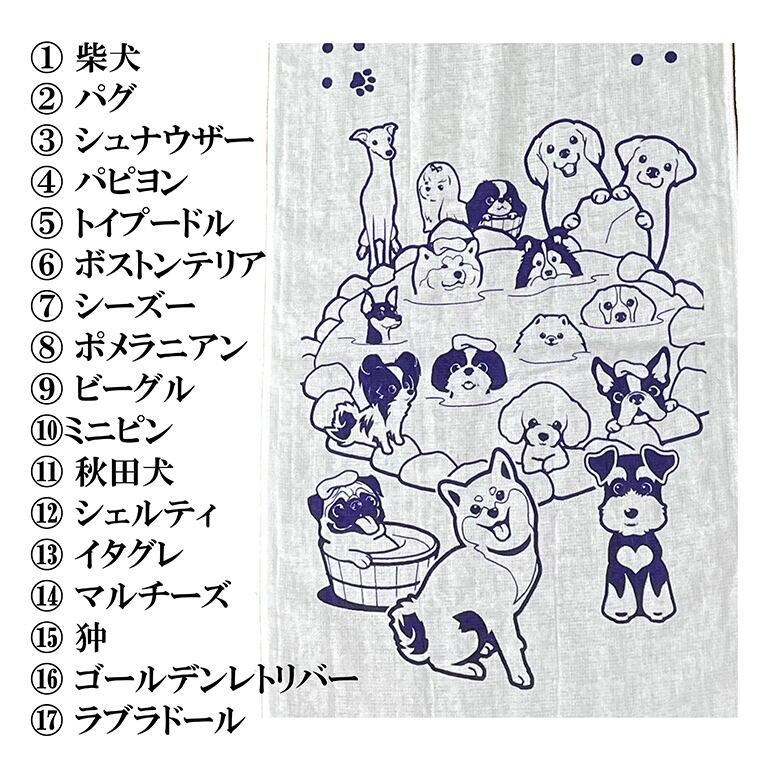 ① 柴犬
② パグ
③ シュナウザー
④ パピヨン
⑤ トイプードル
⑥ ボストンテリア
⑦ シーズー
⑧ ポメラニアン
⑨ ビーグル
⑩ミニピン
⑪ 秋田犬
⑫ シェルティ
⑬ イタグレ
⑭ マルチーズ
⑮ 狆
⑯ ゴールデンレトリバー
⑰ ラブラドール